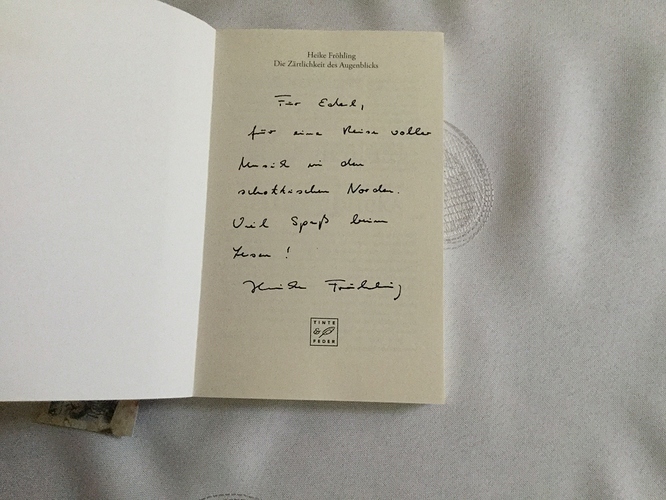 Heike Fröhling
Die Zärtlichkeit des Augenblicks
Für
für eine Reise voller
Musik in den
schottischen Norden.
Viel Spaß beim
Lesen!
Heike Fröhling
TINTE
&
FEDER